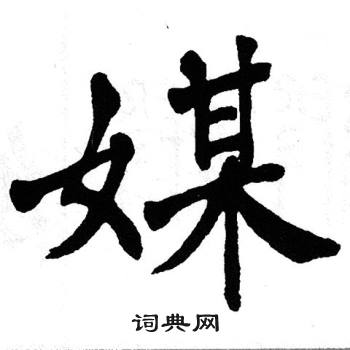 媒
词典网